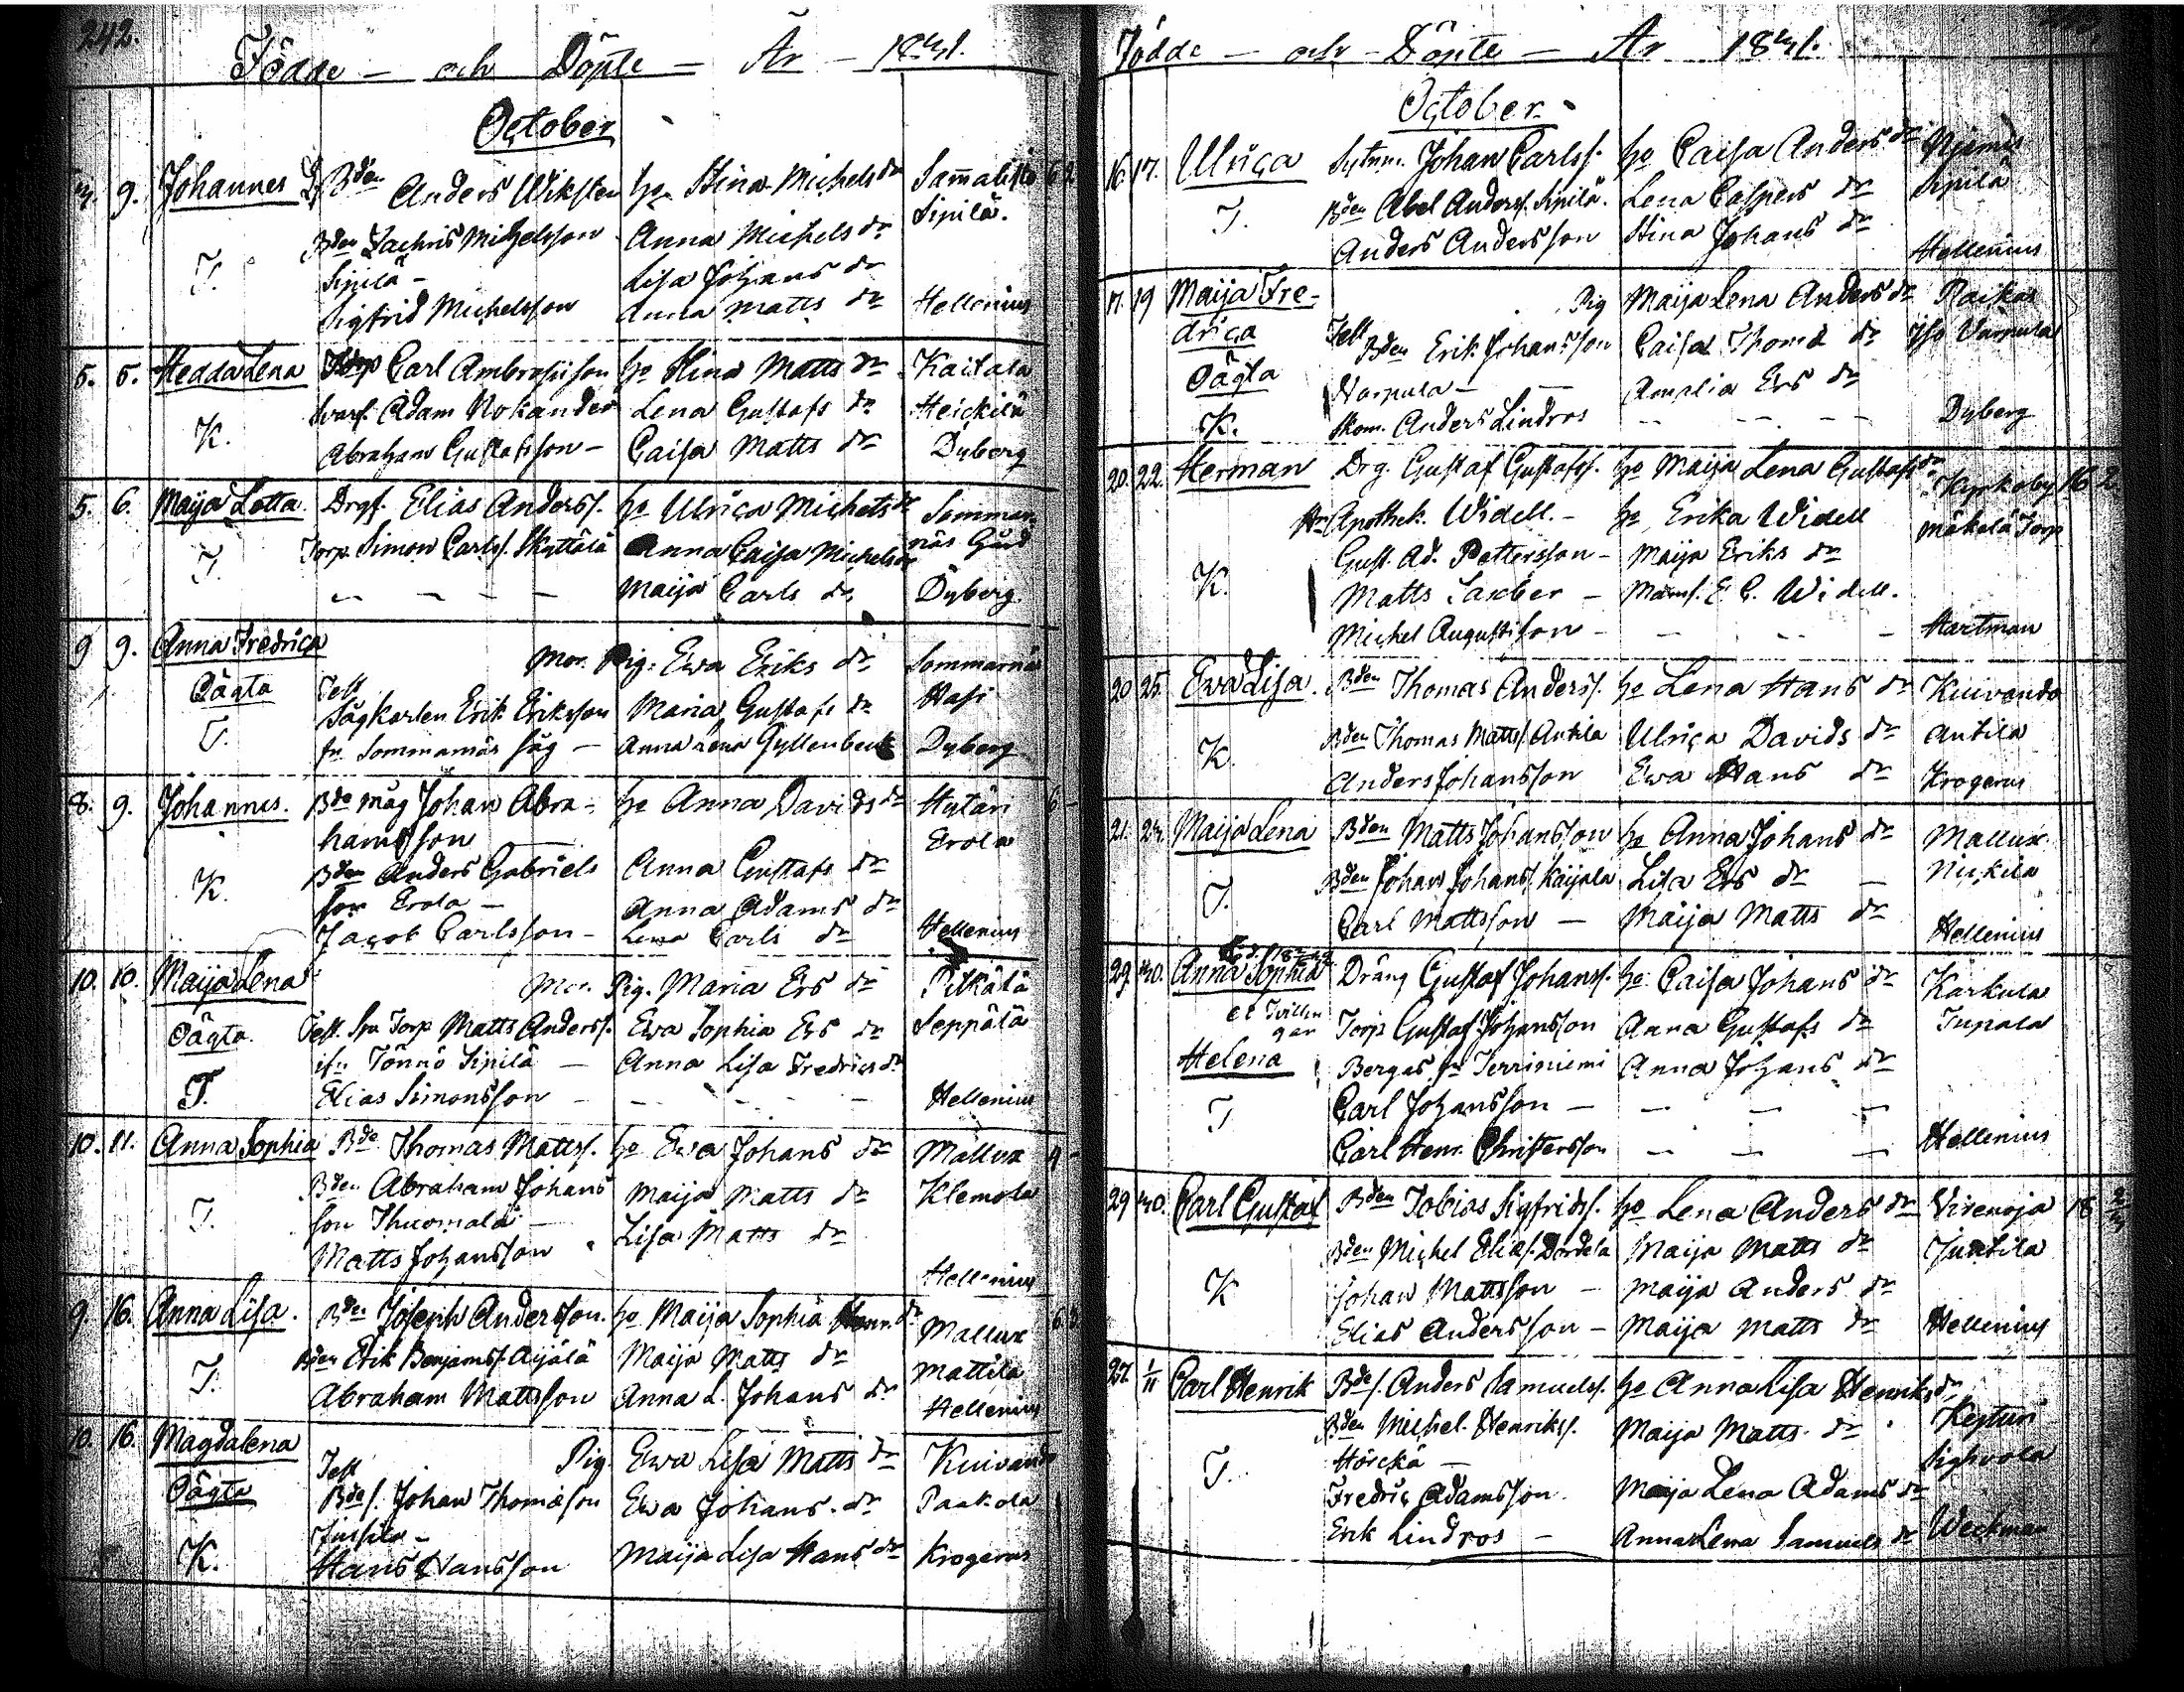 242.
Födde — och Döpte — År — 1841.
October
4. 9. Johannes Bden Anders Wiksten ho Stina Michels dr Sammalisto 62
Bden Zachris Michelsson Anna Michels dr Sipilä.
T. Sipilä — Lisa Johans dr
Sigfrid Michelsson Anna Matts dr Hellenius
5. 5. Hedda Lena Torp Carl Ambrosiison ho Stina Matts dr Kaitala
Svarf. Adam Nokander Lena Gustafs dr Heickilä
K. Abraham Gustafsson — Caisa Matts dr Dyberg
5. 6. Maija Lotta. Drgf. Elias Anderss. ho Ulrica Michels dr Sommar-
Torp. Simon Carlss. Skyttälä Anna Caisa Michels dr näs Gård
T. — — — — Maija Carls dr Dyberg
9 9. Anna Fredrica Mor. Pig. Ewa Eriks dr Sommarnäs
Oägta Test Sågkarlen Erik Eriksson Maria Gustafs dr Hasi
T. fr. Sommarnäs Såg — Anna Lena Gyllenbeck Dyberg
8. 9. Johannes. Bde måg Johan Abra- ho Anna Davids dr Hytän 6 -
hamsson Erola
Bden Anders Gabriels Anna Gustafs dr
K. son Erola — Anna Adams dr
Jacob Carlsson — Lena Carls dr Hellenius
10. 10. Maija Lena Mor. Pig. Maria Ers dr Pitkälä
Oägta. Test. Torp Matts Anderss. Ewa Sophia Ers dr Seppälä
Tönnö Sipilä — Anna Lisa Fredrics dr
T. Elias Simonsson — — — — Hellenius
10. 11. Anna Sophia Bde Thomas Mattss. ho Ewa Johans dr Mallux 4 -
Bden Abraham Johans Maija Matts dr Klemola
T. son Thuomala — Lisa Matts dr
Matts Johansson
Hellenius
9. 16. Anna Lisa. Bden Joseph Andersson. ho Maija Sophia Henr. dr Mallux
Bden Erik Benjamss. Aijälä Maija Matts dr Mattila
T. Abraham Mattsson Anna L. Johans dr Hellenius
10. 16. Magdalena Pig. Ewa Lisa Matts dr Kuivanda
Test
Oägta Bdes. Johan Thomæson Ewa Johans dr Paakola
Jussila —
K. Hans Hansson Maija Lisa Hans dr Krogerus
Födde — och — Döpte — År 1841.
October
16. 17. Ulrica Sytnm. Johan Carlss. ho Caisa Anders dr Njemis
T. Bden Abel Anderss. Sipilä. Lena Caspers dr Sipilä
Anders Andersson Stina Johans dr
Hellenius
17. 19 Maija Fre- Pig Maija Lena Anders dr Raikas
drica Test Bden Erik Johansson Caisa Thomæ dr Iso Varpula
Oägta Varpula — — Amalia Ers dr
K. Skom. Anders Lindros — — — — Dyberg
20. 22. Herman Drg. Gustaf Gustafss. ho Maija Lena Gustafs dr Kyrkoby 16 2.
Hr Apothek. Widell. — ho Erika Widell Mäkelä Torp
Gust. Ad. Pettersson — Maija Eriks dr
K. Matts Saxber — Mams. E. C. Widell.
Michel Augustisson — — — — Hartman
20 25. Ewa Lisa. Bden Thomas Anderss. ho Lena Hans dr Kuivanda
Bden Thomas Mattss. Antila Ulrica Davids dr Antila
K. Anders Johansson Ewa Hans dr Krogerus
21. 24. Maija Lena Bden Matts Johansson ho Anna Johans dr Mallux
Bden Johan Johanss. Kaijala Lisa Ers dr — Nickilä
T. Carl Mattsson — Maija Matts dr Hellenius
29. 30. Anna Sophia Dräng Gustaf Johanss. ho Caisa Johans dr Karkula
et Tvillin
gar Torp Gustaf Johansson Anna Gustafs dr Tupala
Helena Bergas fr Terriniemi Anna Johans dr
T Carl Johansson — — — —
Carl Henr. Christersson — — — Hellenius
29 30. Carl Gustaf Bden Tobias Sigfridss. ho Lena Anders dr Virenoja 18
Bden Michel Elias. Dordela Maija Matts dr Juntila
K Johan Mattsson — Maija Anders dr
Elias Andersson — Maija Matts dr Hellenius
27. 1/11 Carl Henrik Bdes. Anders Samuelss. ho Anna Lisa Henriks dr
Bden Michel. Henrikss. Maija Matts dr Kejturi
T. Hörckä — Sighvola
Fredric Adamsson. Maija Lena Adams dr
Erik Lindros — Anna Lena Samuels dr Weckman